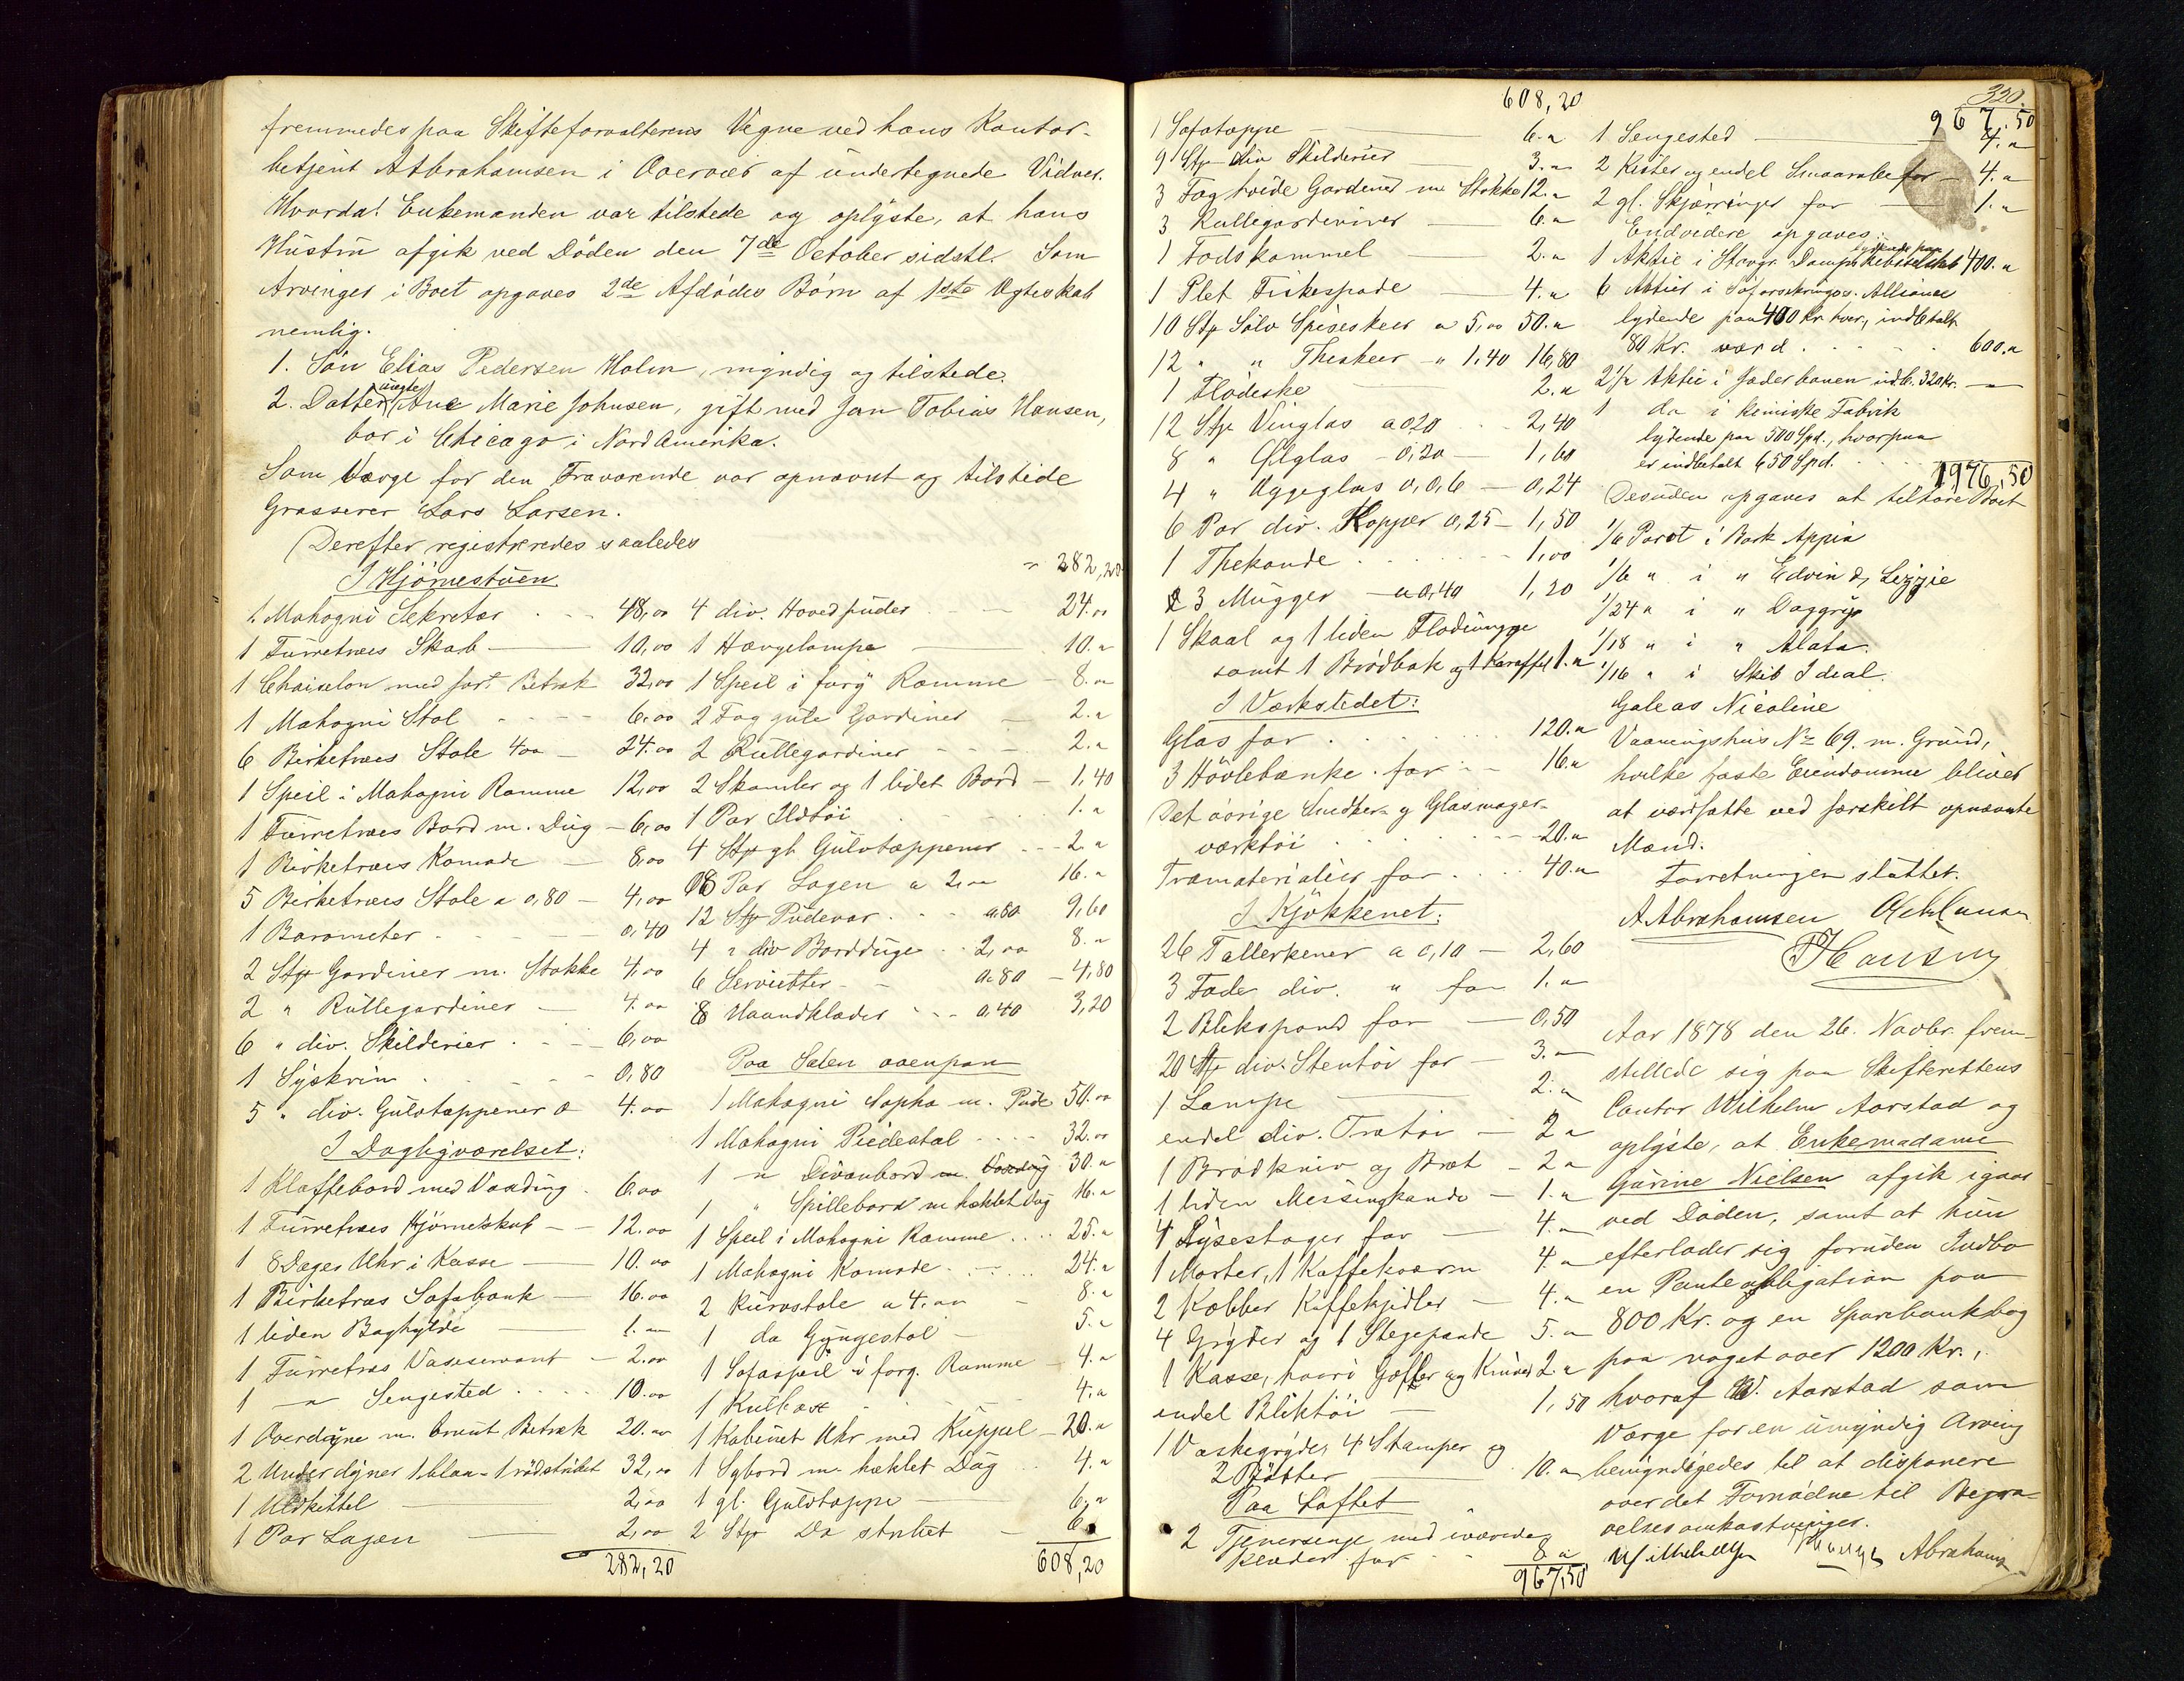 fremmedes paa Skifteforvalterens Vegne ved hans Kontor-
betjent A Abrahamsen i Overvær af undertegnede Vidner.
Hvorda! Enkemanden var tilstede og oplyste, at hans
Hustru afgik ved Døden den 7de October sidstl. Som
Arvinger i Boet opgaves 2de Afdødes Børn af 1ste Ægteskab
nemlig.
1. Søn Elias Pedersen Holm, myndig og tilstede.
2. Datter Ane Marie Johnsen, gift med Jan Tobias Hansen,
bor i Chicago i Nord Amerika.
Som Værge for den Fraværende var opnævnt og tilstede
Grasserer Lars Larsen.
Derefter registreredes saaledes
I Hjørnestuen
1 Mahogni Sekretær 48,00
1 Furretræes Skab 10,00
1 Chaiselon med sort Betræk 32,00
1 Mahogni Stol 6,00
6 Birketræes Stole 4 00 24.00
1 Speil i Mahogni Ramme 12,00
1 Furretræes Bord m. Dug 6,00
1 Birketræes Komode 8,00
5 Birketræes Stole a 0,80 4,00
1 Barometer 0,40
2 Stp Gardiner m. Stokke 4,00
2 " Rullegardiner 4.00
6 " div. Skilderier 6,00
1 Syskrin 0,80
5 " div. Gulvtæppener a 4.00
I Dagligværelset:
1 Klaffebord med Voxdug 6,00
1 Furretræes Hjørneskab 12.00
1 8 Dages Uhr i Kasse 10.00
1 Birketræs Sofabænk 16.00
1 liden Boghylde 1.
1 Furretræs Vaskeservant 2.00
1 " Sengested 10.00
1 Overdyne m. brunt Betræk 20.00
2 Underdyner 1 blaa- 1 rødstribet 32,00
1 Uldkittel 2,00
1 Par Lagen 2,00
282,20
282,20
4 div. Hovedpuder 24.00
1 Hængelampe 10.
1 Speil i forg Ramme 8.
2 Fag gule Gardiner 2.
2 Rullegardiner 2.
2 Skamler og 1 lidet Bord 1,40
1 Par Ildtøi 1.
4 Stp gl Gulvtæppener 2.
8 Par Lagen a 2,00 16.
12 Stp Pudevar 0.80 9,60
4 " div Bordduge 2,00 8.
6 Servietter 0.80 4,80
8 Haandklæder 0.40 3,20
Paa Salen ovenpaa
1 Mahogni Sopha m. Pude 50.00
1 Mahogni Piedestal 32.00
1 " Divanbord m. Voxdug 30.
1 " Spillebord m hæklet Dug 16.
1 Speil i Mahogni Ramme 25.
1 Mahogni Komode 24.
2 Kurvstole a 4.00 8.
1 do Gyngestol 5.
1 Sofaspeil i forg. Ramme 4.
1 Kulkasse 4.
1 Kabinet Uhr med Kuppel 20.
1 Sybord m. hæklet Dug 4.
1 gl. Gulvtæppe 6.
2 Stp Do stribet 6
608,20
608,20
1 Sofatæppe 6.
9 Stp div Skilderier 3.
3 Fag hvide Gardiner m Stokke 12.
3 Rullegardeniner 6.
1 Fodskammel 2.
1 Plet Fiskespade 4.
10 Stp Sølv Spiseskeer a 5,00 50.
12 " " Theskeer " 1,40 16,80
1 Flødeske 2.
12 Stp Vinglas a 0,20 2,40
8 " Ølglas 0,20 1,60
4 " Æggeglas a, 0,6 0,24
6 Par div. Kopper 0,25 1,50
1 Thekande 1,00
3 Mugger a 0,40 1,20
1 Skaal og 1 liden Flødmugge
samt 1 Brødbak og 1 Karaffel 1.
I Værkstedet:
Glas for 120.
3 Høvlebænke for 16.
Det øvrige Snedker- og Glasmager-
værktøi 20.
Træmaterialier for 40.
I Kjøkkenet:
26 Tallerkener a 0,10 2,60
3 Fade div. " for 1.
2 Blikspand for 0,50
20 Stp div. Stentøi for 3.
1 Lampe 2.
endel div. Trætøi 2
1 Brødkniv og Bræt 2
1 liden Messingkande 1.
4 Lysestager for 4.
1 Morter, 1 Kaffekværn 4.
2 Kobber Kaffekjedler 4.
4 Gryder og 1 Stegepande 5.
1 Kasse, hvori Gafler og Knive 2.
endel Bliktøi 1,50
1 Vaskegryde, 4 Stamper og
2 Bøtter 10.
Paa Loftet
2 Tjenersenge med iværende
Klæder for 8
967,50
320.
967,50
1 Sengested 4.
2 Kister og endel Smaarabe for 4.
2 gl. Skjærringer for 1.
Endvidere opgaves:
1 Aktie i Stavgr. Dampskibsselskab lydende paa 400.
6 Aktier i Søforsikrings. Alliance
lydende paa 400 Kr hver, indbetalt
80 Kr. værd 600.
2 1/2 Aktie i Jæderbanen indb. 320 Kr.
1 do i kemiske Fabrik
lydende paa 500 Spd., hvorpaa
er indbetalt 650 Spd.
1976,50
Desuden opgaves at tilhøre Boet
1/6 Parot i Bark Appia
1/6 " i " Edvin & Lizzie
1/24 " i " Daggry
1/18 " i " Alata
1/16 " i Skib Ideal.
Galeas Nicoline
Vaaningshus No 69. m. Grund,
hvilke faste Eiendomme bliver
at værdsatte ved særskilt opnævnte
Mænd.
Forretningen sluttet.
A Abrahamsen
Hansen
Aar 1878 den 26. Novbr. frem-
stillede sig paa Skifterettens
Contor Wilhelm Aarstad og
oplyste, at Enkemadame
Gurine Nielsen afgik igaar
ved Døden, samt at hun
efterlader sig foruden Indbo
en Panteobligation paa
800 Kr. og en Sparebanksbog
paa noget over 1200 Kr.,
hvoraf W. Aarstad som
Værge for en umyndig Arving
bemyndigedes til at disponere
over det Fornødne til Begra-
velsesomkostninger.